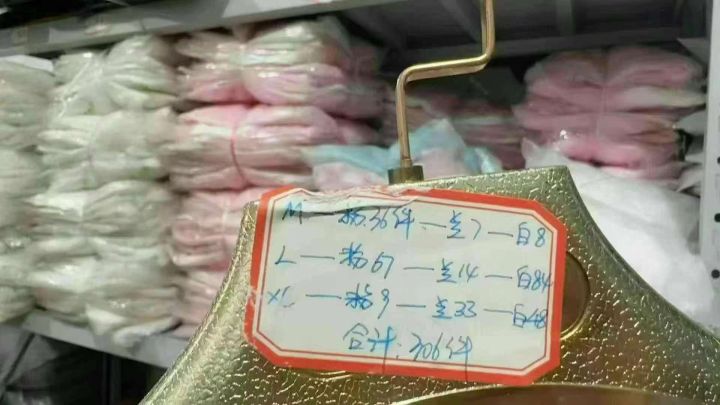 M — 粉36件 — 兰7 — 白8
L — 粉67 — 兰14 — 白84
XL — 粉9 — 兰33 — 白48
合计:306件